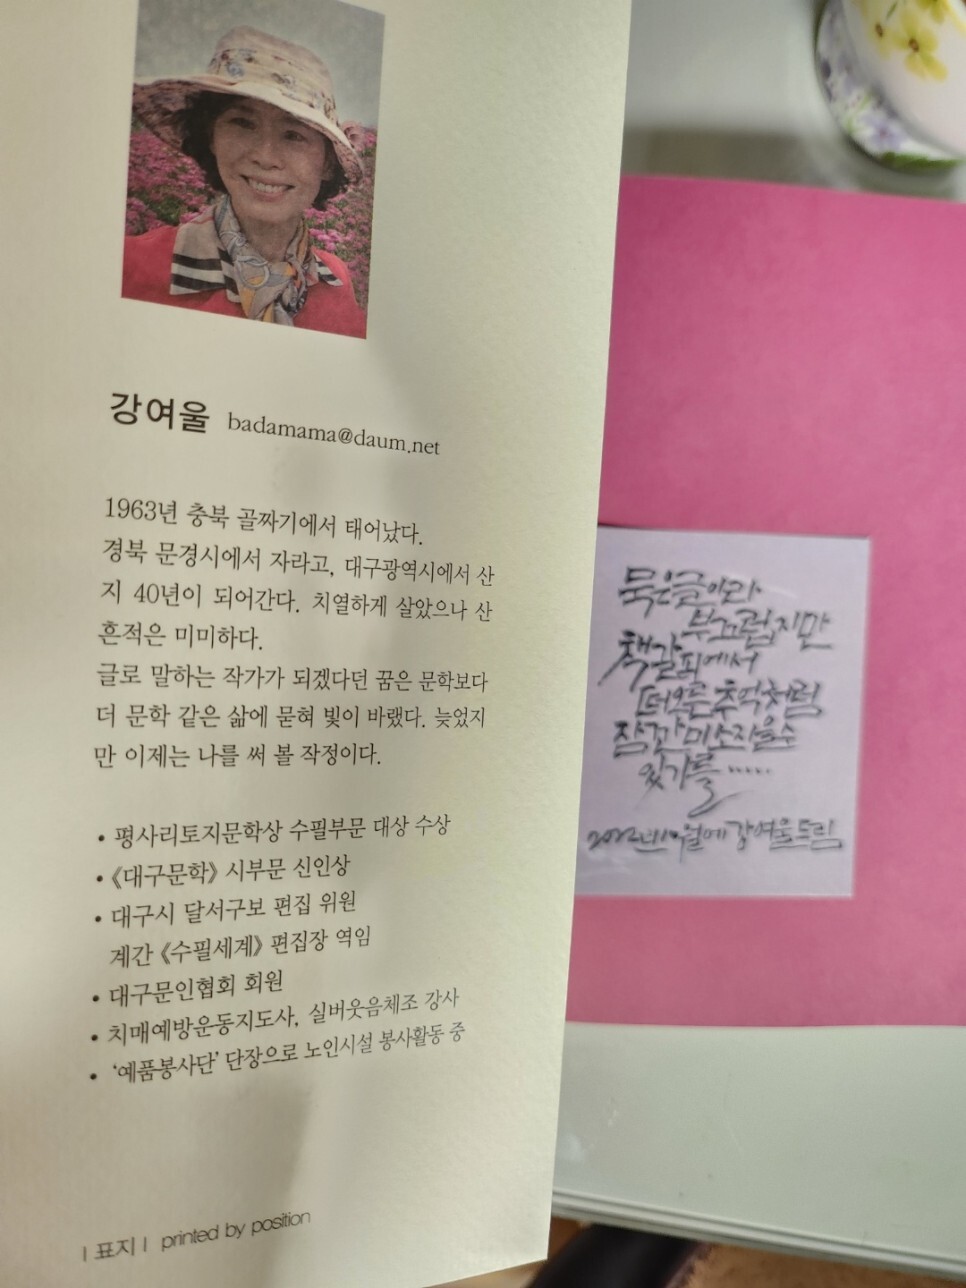 강여울 badamama@daum.net
1963년 충북 골짜기에서 태어났다.
경북 문경시에서 자라고, 대구광역시에서 산
지 40년이 되어간다. 치열하게 살았으나 산
흔적은 미미하다.
글로 말하는 작가가 되겠다던 꿈은 문학보다
더 문학 같은 삶에 묻혀 빛이 바랬다. 늦었지
만 이제는 나를 써 볼 작정이다.
• 평사리토지문학상 수필부문 대상 수상
• 《대구문학》 시부문 신인상
• 대구시 달서구보 편집 위원
계간 《수필세계》 편집장 역임
• 대구문인협회 회원
• 치매예방운동지도사, 실버웃음체조 강사
• ‘예품봉사단’ 단장으로 노인시설 봉사활동 중
| 표지 | printed by position
묵은글이라
부끄럽지만
책갈피에서
떠오른 추억처럼
잠깐 미소지을수
있기를 ······
2022년 10월에 강여울 드림